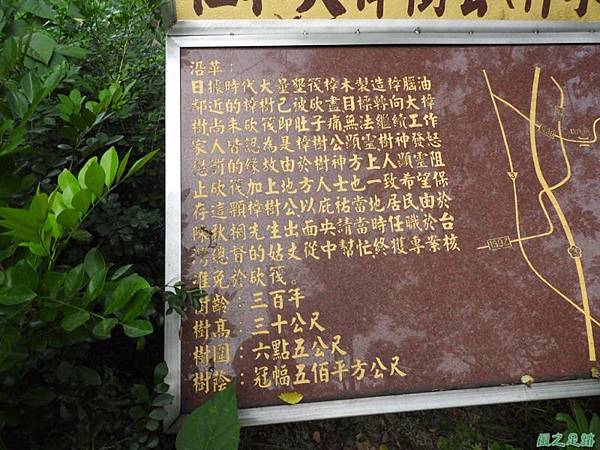 沿革：
日據時代大量墾筏樟木製造樟腦油
鄰近的樟樹已被砍盡目標轉向大樟
樹尚未砍筏即肚子痛無法繼續工作
家人皆認為是樟樹公顯靈樹神發怒
懲罰的緣故由於樹神方上人顯靈阻
止砍筏加上地方人士也一致希望保
存這顆樟樹公以庇祐當地居民由於
陳秋桐先生出面央請當時任職於台
灣總督的姑丈從中幫忙終獲專案核
准免於砍筏。
樹齡：三百年
樹高：三十公尺
樹圍：六點五公尺
樹蔭：冠幅五佰平方公尺
風之足跡